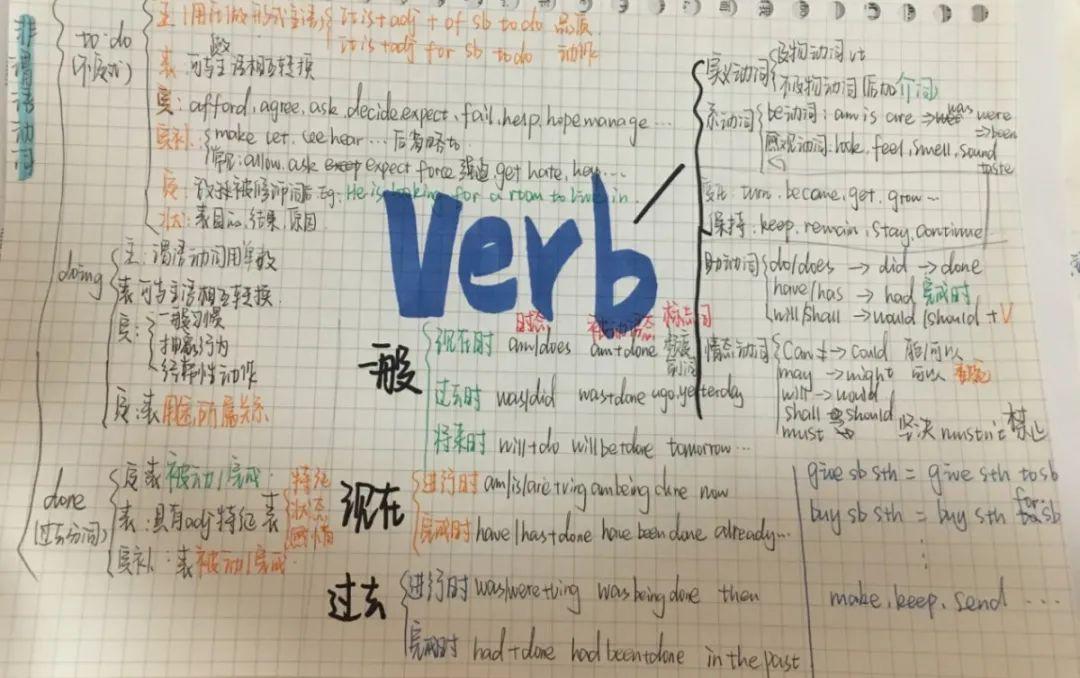 非谓语动词
to do
(不定式)
主:用it做形式主语 it is + adj + of sb to do 品质
it is + adj for sb to do 动作
表 可与主语相互转换
宾: afford, agree, ask, decide, expect, fail, help, hope, manage ...
宾补: make let, see hear ... 后省略to
常见: allow, ask expect force 强迫 get hate, ...
定: 放在被修饰词后 eg: He is looking for a room to live in.
状: 表目的、结果、原因
doing
主: 谓语动词用单数
表 可与主语相互转换
宾: 一般习惯
抽象行为
经常性动作
定: 表用途、所属关系
done
(过去分词)
定 表被动/完成
表: 具有adj特征 表 特征
状态
感情
宾补: 表被动/完成
Verb
实义动词 及物动词 vt
不及物动词 (后加介词)
系动词 be动词: am is are → was were
→ been
感观动词: look, feel, smell, sound
taste
变化: turn, become, get, grow ...
保持: keep, remain, stay, continue
助动词 do/does → did → done
have/has → had 完成时
will/shall → would/should + V
情态动词 can → could 能/可以
may → might 可以
will → would
shall → should
must 坚决 mustn't 禁止
时态 被动语态 标志词
一般
现在时 am/does am+done 频度副词
过去时 was/did was+done ago, yesterday
将来时 will+do will be+done tomorrow ...
现在
进行时 am/is/are+ving am being done now
完成时 have/has+done have been done already...
过去
进行时 was/were+ving was being done then
完成时 had+done had been+done in the past
give sb sth = give sth to sb
buy sb sth = buy sth for sb
make, keep, send ...